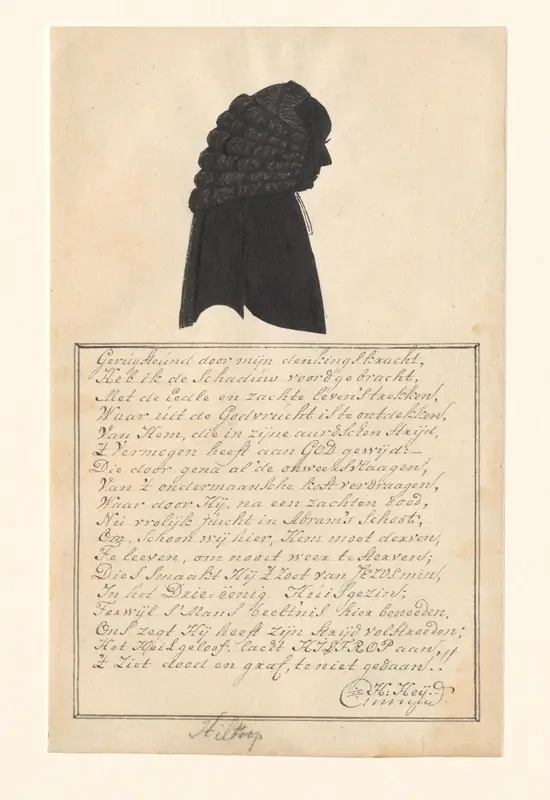 Gerúgsteúnd door mijn denkingskracht,
Heb ik de Schadúw voordgebracht,
Met de Eedle en zachte levenstrekken,
Waar úit de Godvrúcht is te ontdekken,
Van Hem, die in zijne aardschen Strijd,
't Vermogen heeft aan GOD gewijd: —
Die door gená al de onweersvlaagen,
Van 't ondermaansche kost verdraagen,
Waar door Hij, na een zachten dood,
Nú vrolijk júcht in Abram's Schoot;
Om, Schoon wij hier, Hem moet derven,
Te leeven, om nooit weer te Sterven;
Dies Smaakt Hij 't Zoet van JEZUS min,
In het Drie-ëenig Húisgezin;
Terwijl S'Mans beelt'nis hier beneeden,
Ons zegt Hij heeft zijn Strijd volstreeden;
Het Heilgeloof, lacht HILTROP aan,
't Ziet dood en graf, te niet gedaan!!!
H: Heÿ
Hiltrop